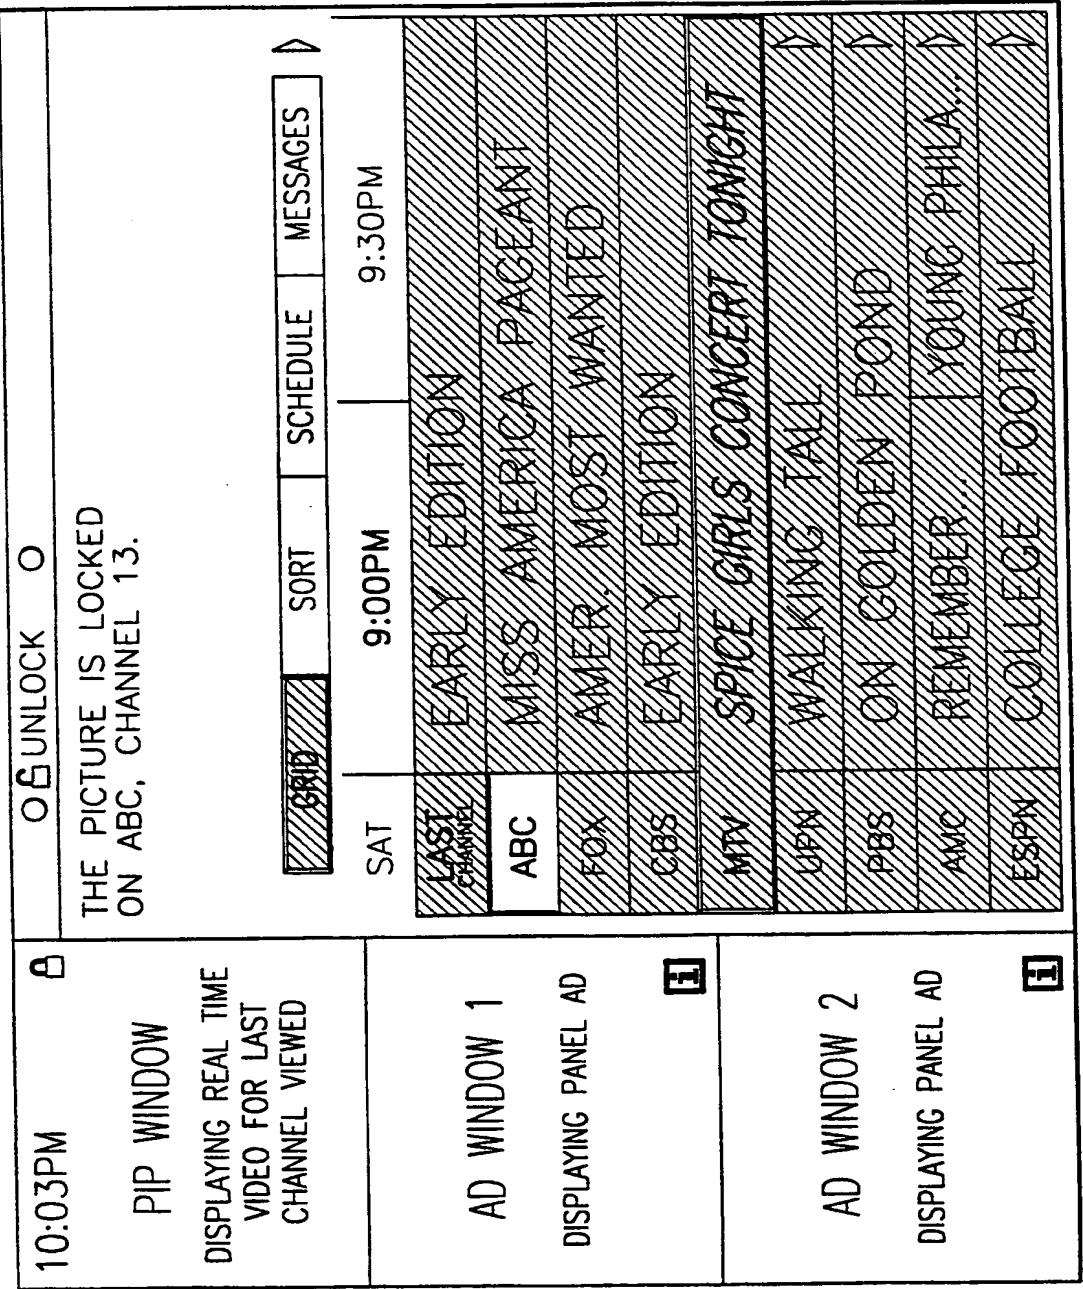 10:03PM
PIP WINDOW
DISPLAYING REAL TIME
VIDEO FOR LAST
CHANNEL VIEWED
AD WINDOW 1
DISPLAYING PANEL AD
i
AD WINDOW 2
DISPLAYING PANEL AD
i
UNLOCK
THE PICTURE IS LOCKED
ON ABC, CHANNEL 13.
GRID SORT SCHEDULE MESSAGES
SAT 9:00PM 9:30PM
LAST CHANNEL EARLY EDITION
ABC MISS AMERICA PAGEANT
FOX AMER. MOST WANTED
CBS EARLY EDITION
MTV SPICE GIRLS CONCERT TONIGHT
UPN WALKING TALL
PBS ON GOLDEN POND
AMC REMEMBER... YOUNG PHILA...
ESPN COLLEGE FOOTBALL